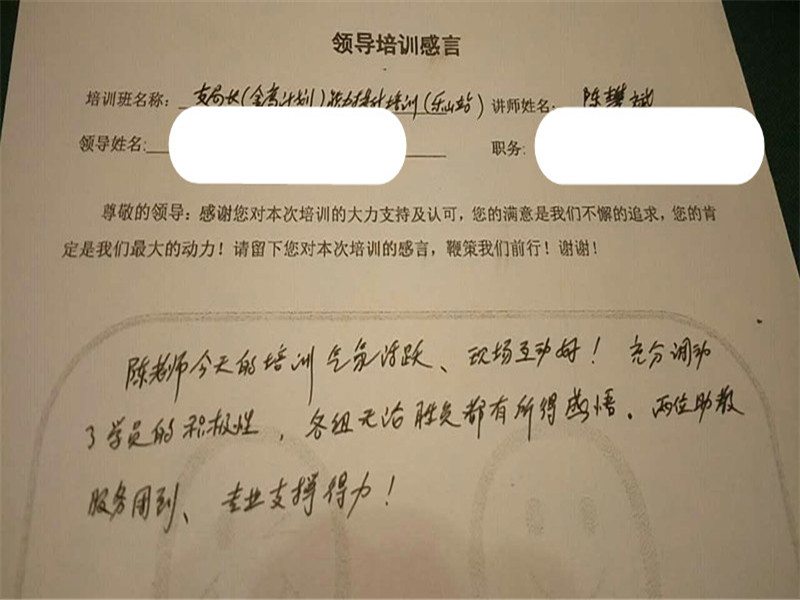 领导培训感言
培训班名称: 支局长(金秀计划)能力提升培训(乐山站) 讲师姓名: 陈攀斌
领导姓名: 职务:
尊敬的领导：感谢您对本次培训的大力支持及认可，您的满意是我们不懈的追求，您的肯
定是我们最大的动力！请留下您对本次培训的感言，鞭策我们前行！谢谢！
陈老师今天的培训气氛活跃、现场互动好！充分调动
了学员的积极性，各组无论胜负都有所得感悟。两位助教
服务周到、专业支撑得力！